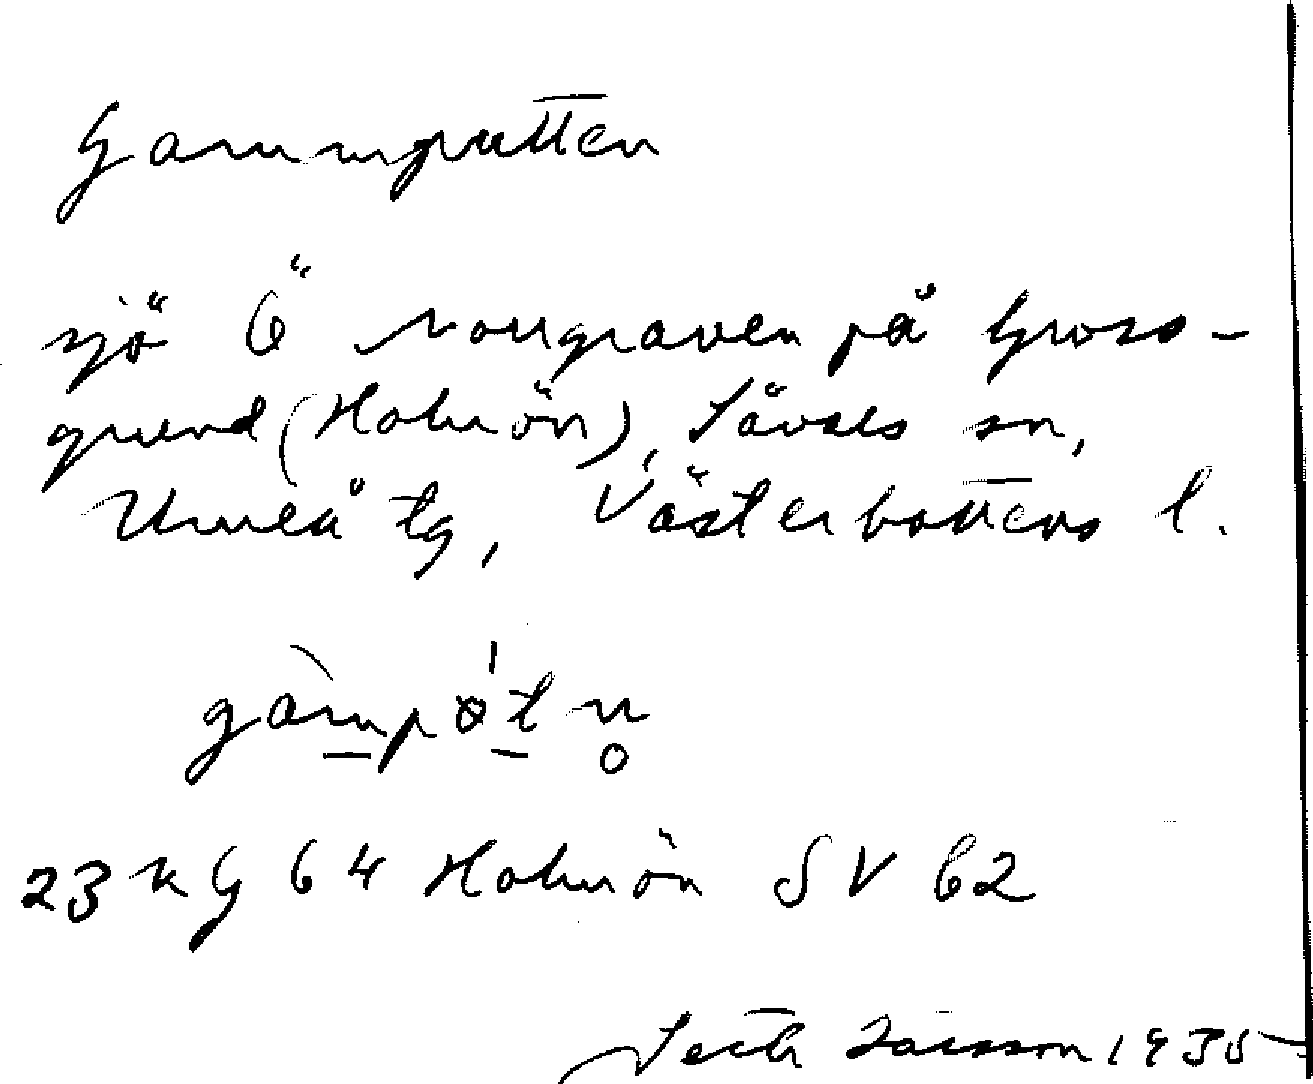 Gammputten
sjö Ö Norrgraven på Gross-
grund (Holmön), Sävars sn,
Umeå tg, Västerbottens l.
23 K G 64 Holmön SV 62
Seth Jansson 1935